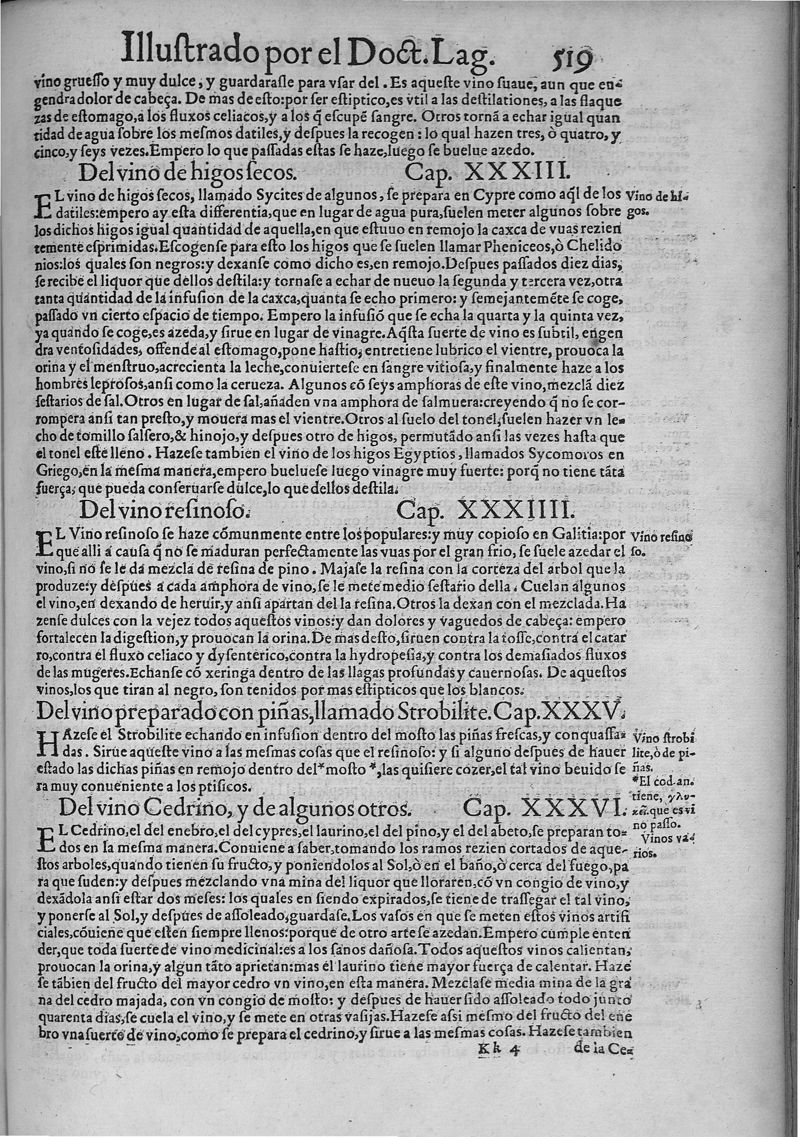 Illuſtrado por el Doct. Lag. 519
vino grueſſo y muy dulce, y guardaraſſe para vſar del. Es aqueſte vino ſuaue, aun que en-
gendra dolor de cabeça. De mas de eſto: por ſer eſtiptico, es vtil a las deſtilationes, a las flaque
zas de eſtomago, a los fluxos celiacos, y a los q̃ eſcupẽ ſangre. Otros tornã a echar igual quan
tidad de agua ſobre los meſmos datiles, y deſpues la recogen: lo qual hazen tres, ò quatro, y
cinco, y ſeys vezes. Empero lo que paſſadas eſtas ſe haze, luego ſe buelue azedo.
Del vino de higos ſecos. Cap. XXXIII.
EL vino de higos ſecos, llamado Sycites de algunos, ſe prepara en Cypre como aq̃l de los
Vino de hi-
datiles: empero ay eſta differentia, que en lugar de agua pura, ſuelen meter algunos ſobre
gos.
los dichos higos igual quantidad de aquella, en que eſtuuo en remojo la caxca de vuas rezien
temente eſprimidas. Eſcogenſe para eſto los higos que ſe ſuelen llamar Pheniceos, ò Chelido
nios: los quales ſon negros: y dexanſe como dicho es, en remojo. Deſpues paſſados diez dias,
ſe recibe el liquor que dellos deſtila: y tornaſe a echar de nueuo la ſegunda y tercera vez, otra
tanta quantidad de la infuſion de la caxca, quanta ſe echo primero: y ſemejantemẽte ſe coge,
paſſado vn cierto eſpacio de tiempo. Empero la infuſiõ que ſe echa la quarta y la quinta vez,
ya quando ſe coge, es azeda, y ſirue en lugar de vinagre. Aq̃ſta fuerte de vino es ſubtil, engen
dra ventoſidades, offende al eſtomago, pone haſtio, entretiene lubrico el vientre, prouoca la
orina y el menſtruo, acrecienta la leche, conuierteſe en ſangre vitioſa, y finalmente haze a los
hombres leproſos, anſi como la cerueza. Algunos cõ ſeys amphoras de eſte vino, mezclã diez
ſeſtarios de ſal. Otros en lugar de ſal, añaden vna amphora de ſalmuera: creyendo q̃ no ſe cor-
rompera anſi tan preſto, y mouera mas el vientre. Otros al ſuelo del tonel, ſuelen hazer vn le-
cho de tomillo ſalſero, & hinojo, y deſpues otro de higos, permutãdo anſi las vezes haſta que
el tonel eſte lleno. Hazeſe tambien el vino de los higos Egyptios, llamados Sycomoros en
Griego, en la meſma manera, empero bueluese luego vinagre muy fuerte: porq̃ no tiene tãta
fuerça, que pueda conſeruarſe dulce, lo que dellos deſtila.
Del vino reſinoſo. Cap. XXXIIII.
EL Vino reſinoſo ſe haze cõmunmente entre los populares: y muy copioſo en Galitia: por
Vino reſino
que alli a cauſa q̃ no ſe maduran perfectamente las vuas por el gran frio, ſe ſuele azedar el
ſo.
vino, ſi no ſe le da mezcla de reſina de pino. Majaſe la reſina con la corteza del arbol que la
produze: y deſpues a cada amphora de vino, ſe le mete medio ſeſtario della. Cuelan algunos
el vino, en dexando de heruir, y anſi apartan del la reſina. Otros la dexan con el mezclada. Ha
zenſe dulces con la vejez todos aqueſtos vinos: y dan dolores y vaguedos de cabeça: empero
fortalecen la digeſtion, y prouocan la orina. De mas deſto, ſiruen contra la toſſe, contra el catar
ro, contra el fluxo celiaco y dyſenterico, contra la hydropeſia, y contra los demaſiados fluxos
de las mugeres. Echanſe cõ xeringa dentro de las llagas profundas y cauernoſas. De aqueſtos
vinos, los que tiran al negro, ſon tenidos por mas eſtipticos que los blancos.
Del vino preparado con piñas, llamado Strobilite. Cap. XXXV.
HAzeſe el Strobilite echando en infuſion dentro del moſto las piñas freſcas, y conquaſſa-
Vino ſtrobi
das. Sirue aqueſte vino a las meſmas coſas que el reſinoſo: y ſi alguno deſpues de hauer
lite, ò de pi-
eſtado las dichas piñas en remojo dentro del *moſto *, las quiſiere cozer, el tal vino beuido ſe
ñas.
ra muy conueniente a los ptiſicos.
*El cod. an.
tiene, γλυ-
Del vino Cedrino, y de algunos otros. Cap. XXXVI.
que es vi
no paſſo.
EL Cedrino, el del enebro, el del cypres, el laurino, el del pino, y el del abeto, ſe preparan to-
Vinos va-
dos en la meſma manera. Conuiene a ſaber, tomando los ramos rezien cortados de aque-
rios.
ſtos arboles, quando tienen ſu fructo, y poniendolos al Sol, ò en el baño, ò cerca del fuego, pa
ra que ſuden: y deſpues mezclando vna mina del liquor que lloraren, cõ vn congio de vino, y
dexãdola anſi eſtar dos meſes: los quales en ſiendo expirados, ſe tiene de traſſegar el tal vino,
y ponerſe al Sol, y deſpues de aſſoleado, guardaſe. Los vaſos en que ſe meten eſtos vinos artifi
ciales, cõuiene que eſten ſiempre llenos: porque de otro arte ſe azedan. Empero cumple enten
der, que toda ſuerte de vino medicinal: es a los ſanos dañoſa. Todos aqueſtos vinos calientan,
prouocan la orina, y algun tãto aprietan: mas el laurino tiene mayor fuerça de calentar. Haze
ſe tãbien del fructo del mayor cedro vn vino, en eſta manera. Mezclaſe media mina de la gra
na del cedro majada, con vn congio de moſto: y deſpues de hauer ſido aſſoleado todo junto
quarenta dias, ſe cuela el vino, y ſe mete en otras vaſijas. Hazeſe aſsi meſmo del fructo del ene
bro vna ſuerte de vino, como ſe prepara el cedrino, y ſirue a las meſmas coſas. Hazeſe tambien
Kk 4 de la Ce-